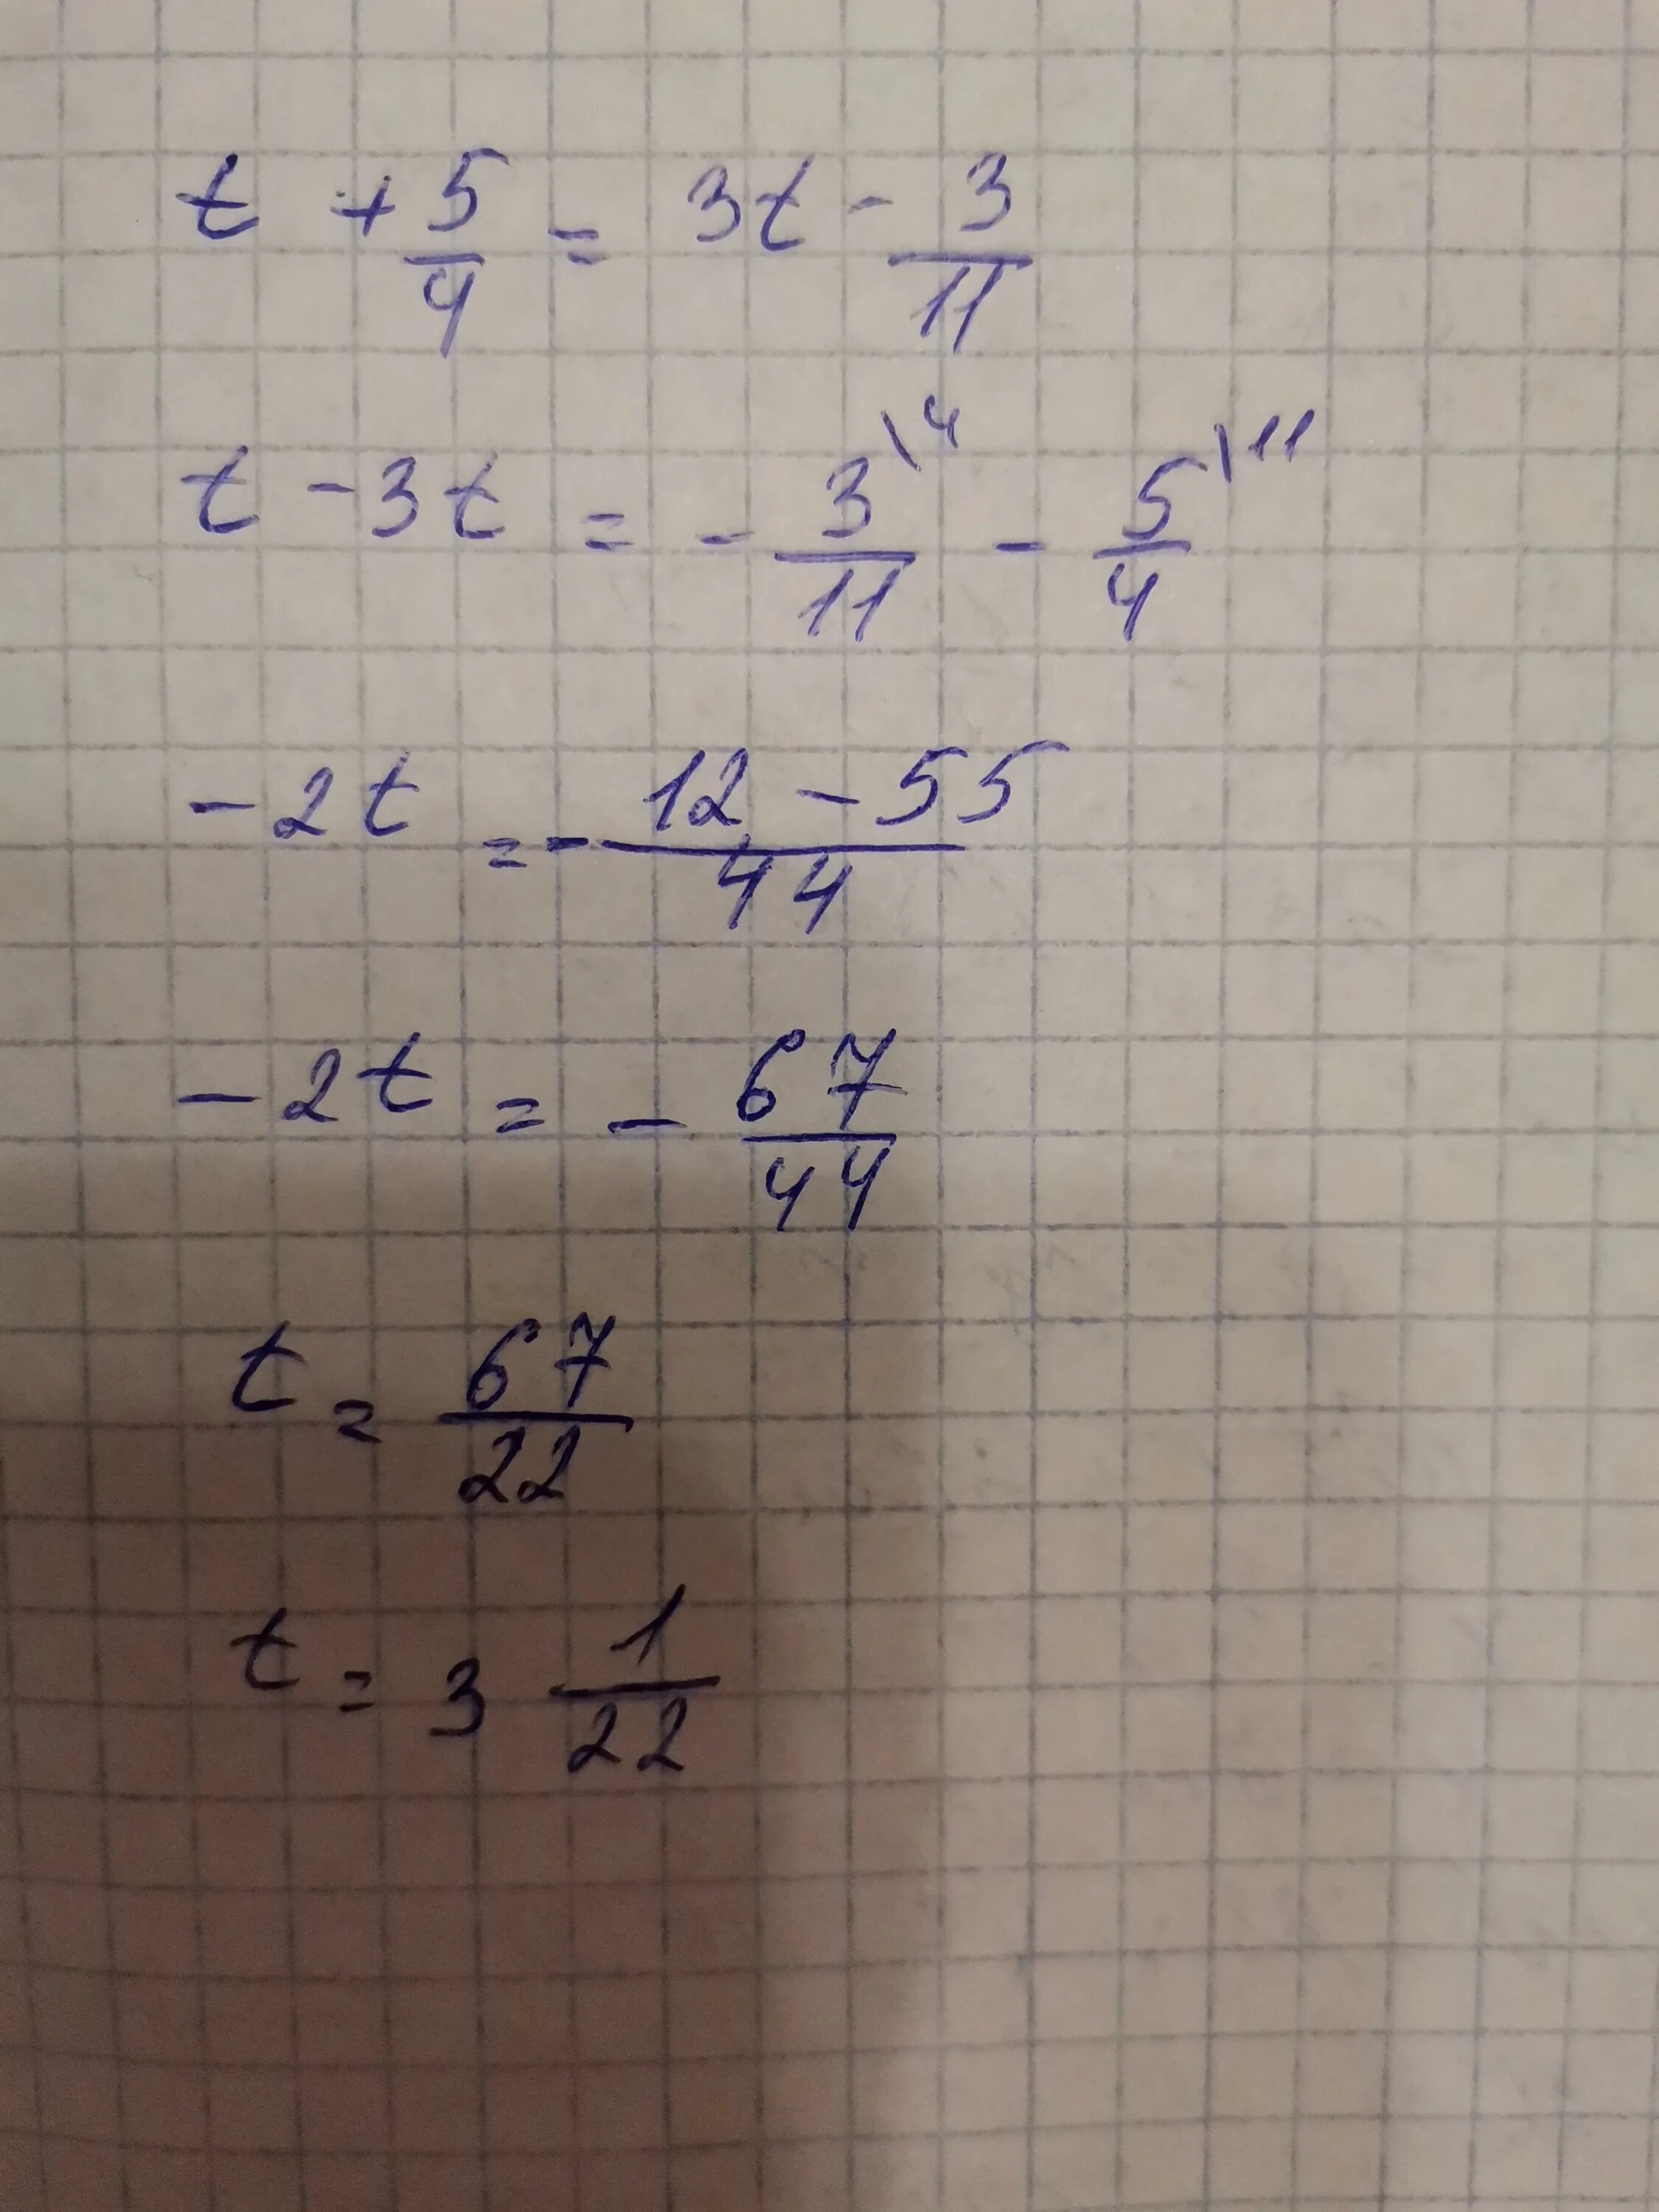 t + 5/4 = 3t - 3/11
t - 3t = - 3\4/11 - 5\11/4
-2t = - 12 - 55/44
-2t = - 67/44
t = 67/22
t = 3 1/22